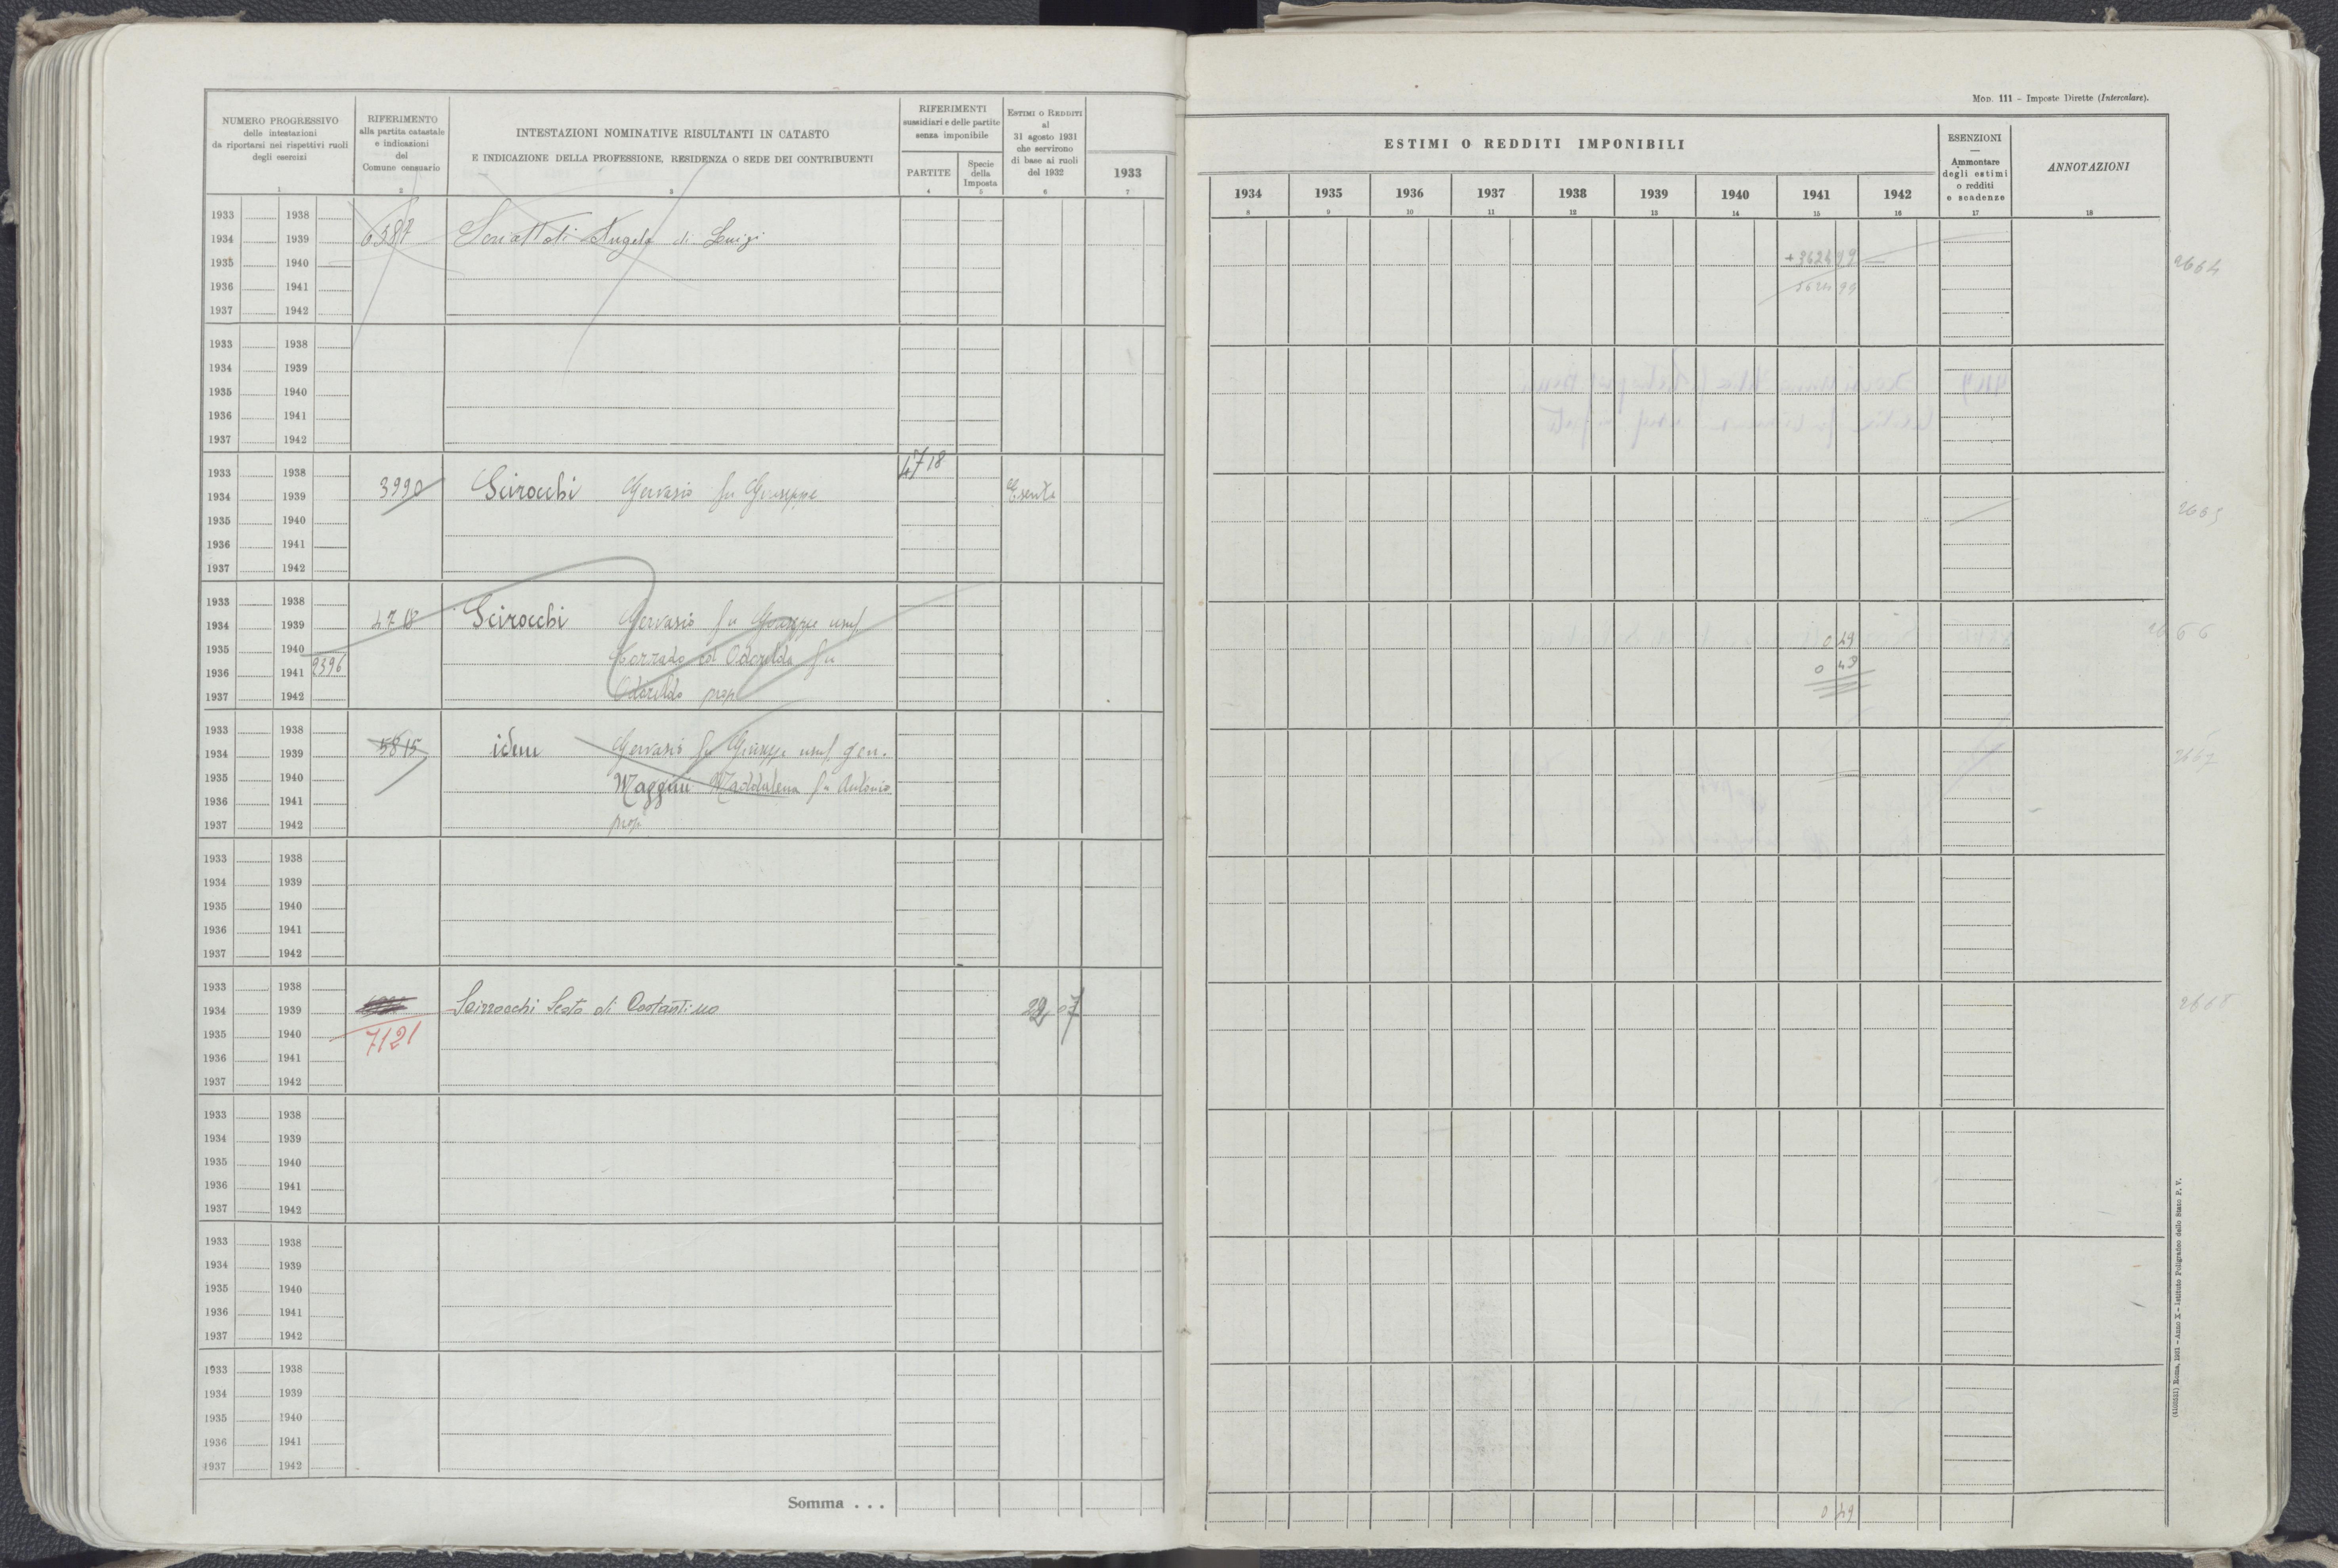 NUMERO PROGRESSIVO
delle intestazioni
da riportarsi nei rispettivi ruoli
degli esercizi
1
RIFERIMENTO
alla partita catastale
e indicazioni
del
Comune censuario
2
INTESTAZIONI NOMINATIVE RISULTANTI IN CATASTO
E INDICAZIONE DELLA PROFESSIONE, RESIDENZA O SEDE DEI CONTRIBUENTI
3
RIFERIMENTI
sussidiari e delle partite
senza imponibile
PARTITE
4
Specie
della
Imposta
5
Estimi o Redditi
al
31 agosto 1931
che servirono
di base ai ruoli
del 1932
6
1933
7
Mod. 111 - Imposte Dirette (Intercalare).
ESTIMI O REDDITI IMPONIBILI
1934 1935 1936 1937 1938 1939 1940 1941 1942
8 9 10 11 12 13 14 15 16
ESENZIONI
—
Ammontare
degli estimi
o redditi
e scadenze
17
ANNOTAZIONI
18
1933 1938
1934 1939 6387 Angelo di Luigi
1935 1940 2664
1936 1941
1937 1942
1933 1938
1934 1939
1935 1940
1936 1941
1937 1942
1933 1938 4718
1934 1939 3990 Scirocchi Gervasio fu Giuseppe Esente
1935 1940 2665
1936 1941
1937 1942
1933 1938
1934 1939 4718 Scirocchi Gervasio fu Giuseppe usuf. 2666
1935 1940 Corrado ed Odorilda fu 0 49
1936 1941 2396 0 49
1937 1942 Odorildo prop
1933 1938
1934 1939 5815 idem Gervasio fu Giuseppe usuf. gen. 2667
1935 1940 Maggini Maddalena fu Antonio
1936 1941
1937 1942 prop
1933 1938
1934 1939
1935 1940
1936 1941
1937 1942
1933 1938
1934 1939 Scirrocchi Sesto di Costantino 22 07 2668
1935 1940 7121
1936 1941
1937 1942
1933 1938
1934 1939
1935 1940
1936 1941
1937 1942
1933 1938
1934 1939
1935 1940
1936 1941
1937 1942
1933 1938
1934 1939
1935 1940
1936 1941
1937 1942
Somma . . . 0 49
(4100531) Roma, 1931 - Anno X - Istituto Poligrafico dello Stato P. V.